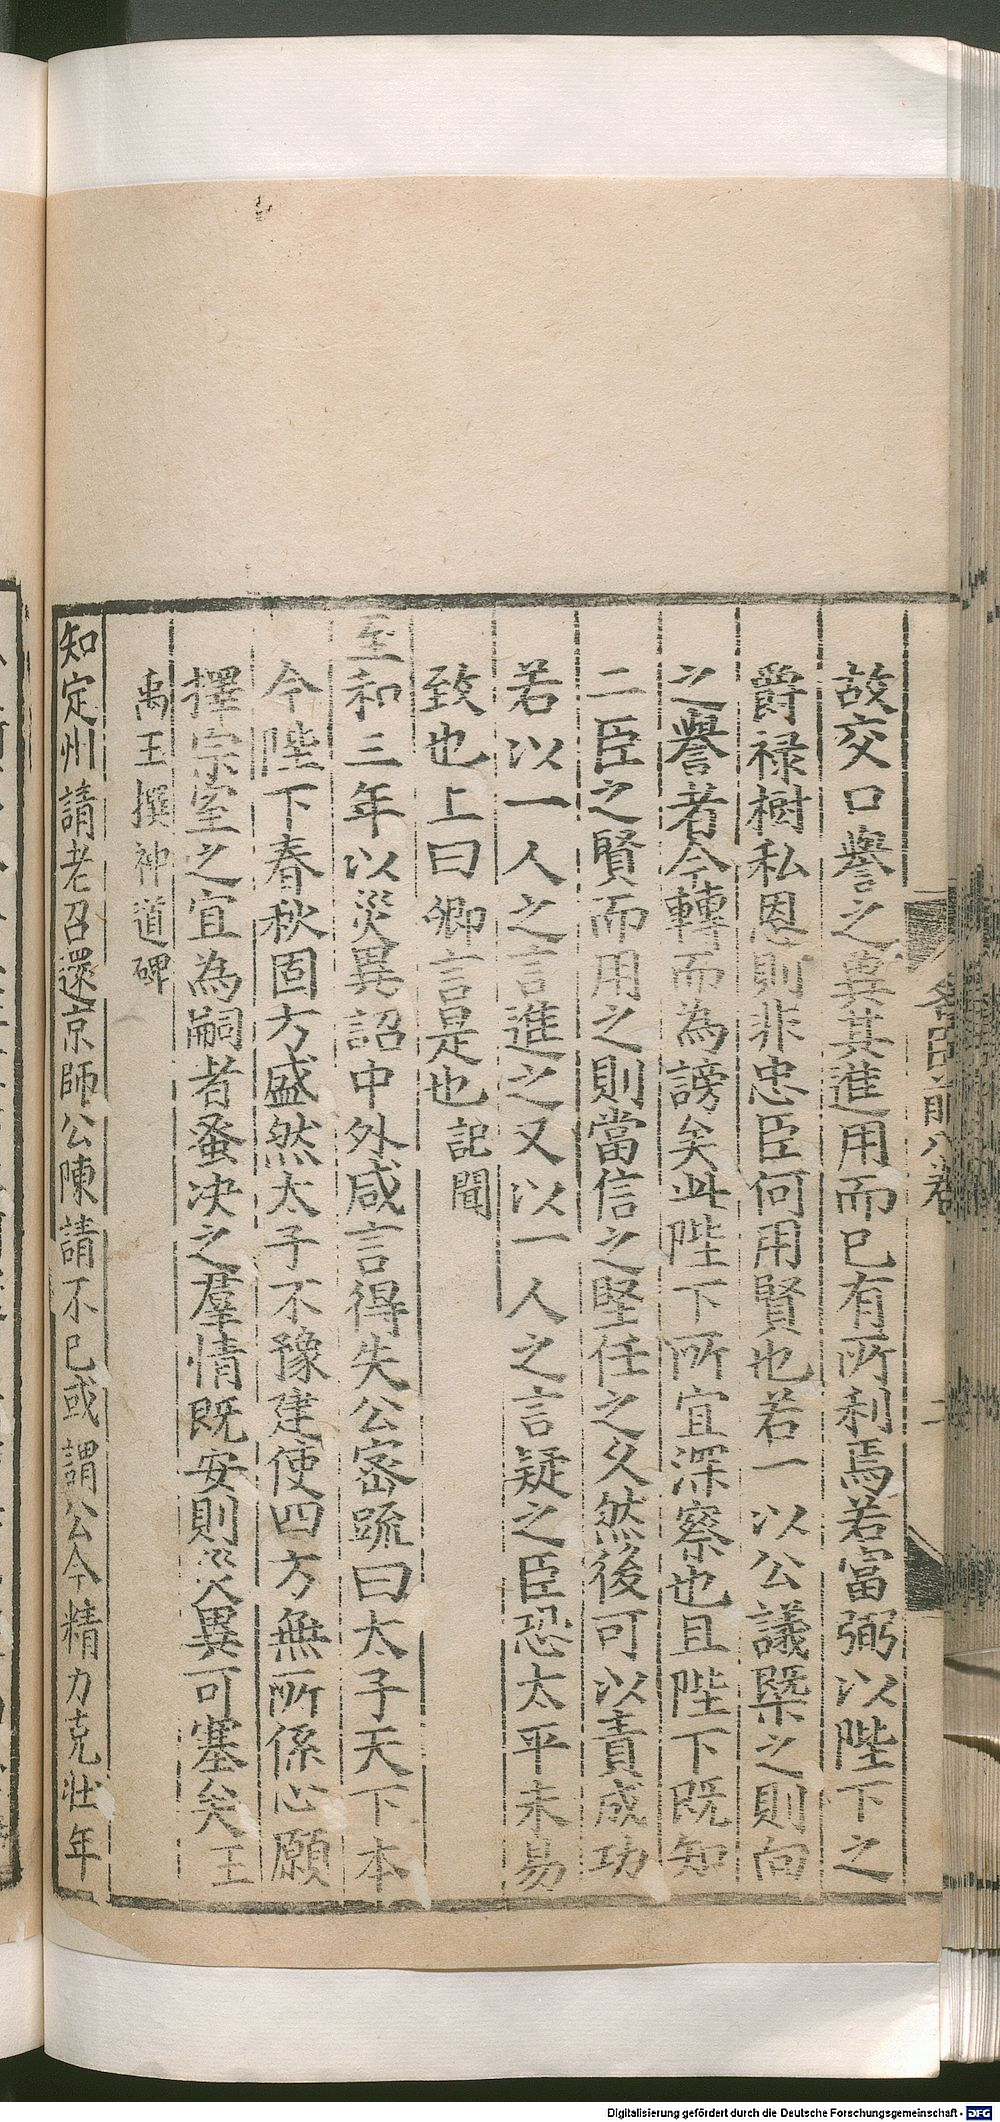 故交口譽之冀其進用而已有所利焉若富弼以陛下之
爵禄樹私恩則非忠臣何用賢也若一以公議槩之則向
之譽者今轉而為謗矣此陛下所宜深察也且陛下既知
二臣之賢而用之則當信之堅任之久然後可以責成功
若以一人之言進之又以一人之言疑之臣恐太平未易
致也上曰卿言是也記聞
至和三年以災異詔中外咸言得失公密疏曰太子天下本
今陛下春秋固方盛然太子不豫建使四方無所係心願
擇宗室之宜為嗣者蚤决之羣情既安則災異可塞矣王
禹玉撰神道碑
知定州請老召還京師公陳請不已或謂公今精力克壯年
名臣前八卷
二
Digitalisierung gefördert durch die Deutsche Forschungsgemeinschaft - DFG